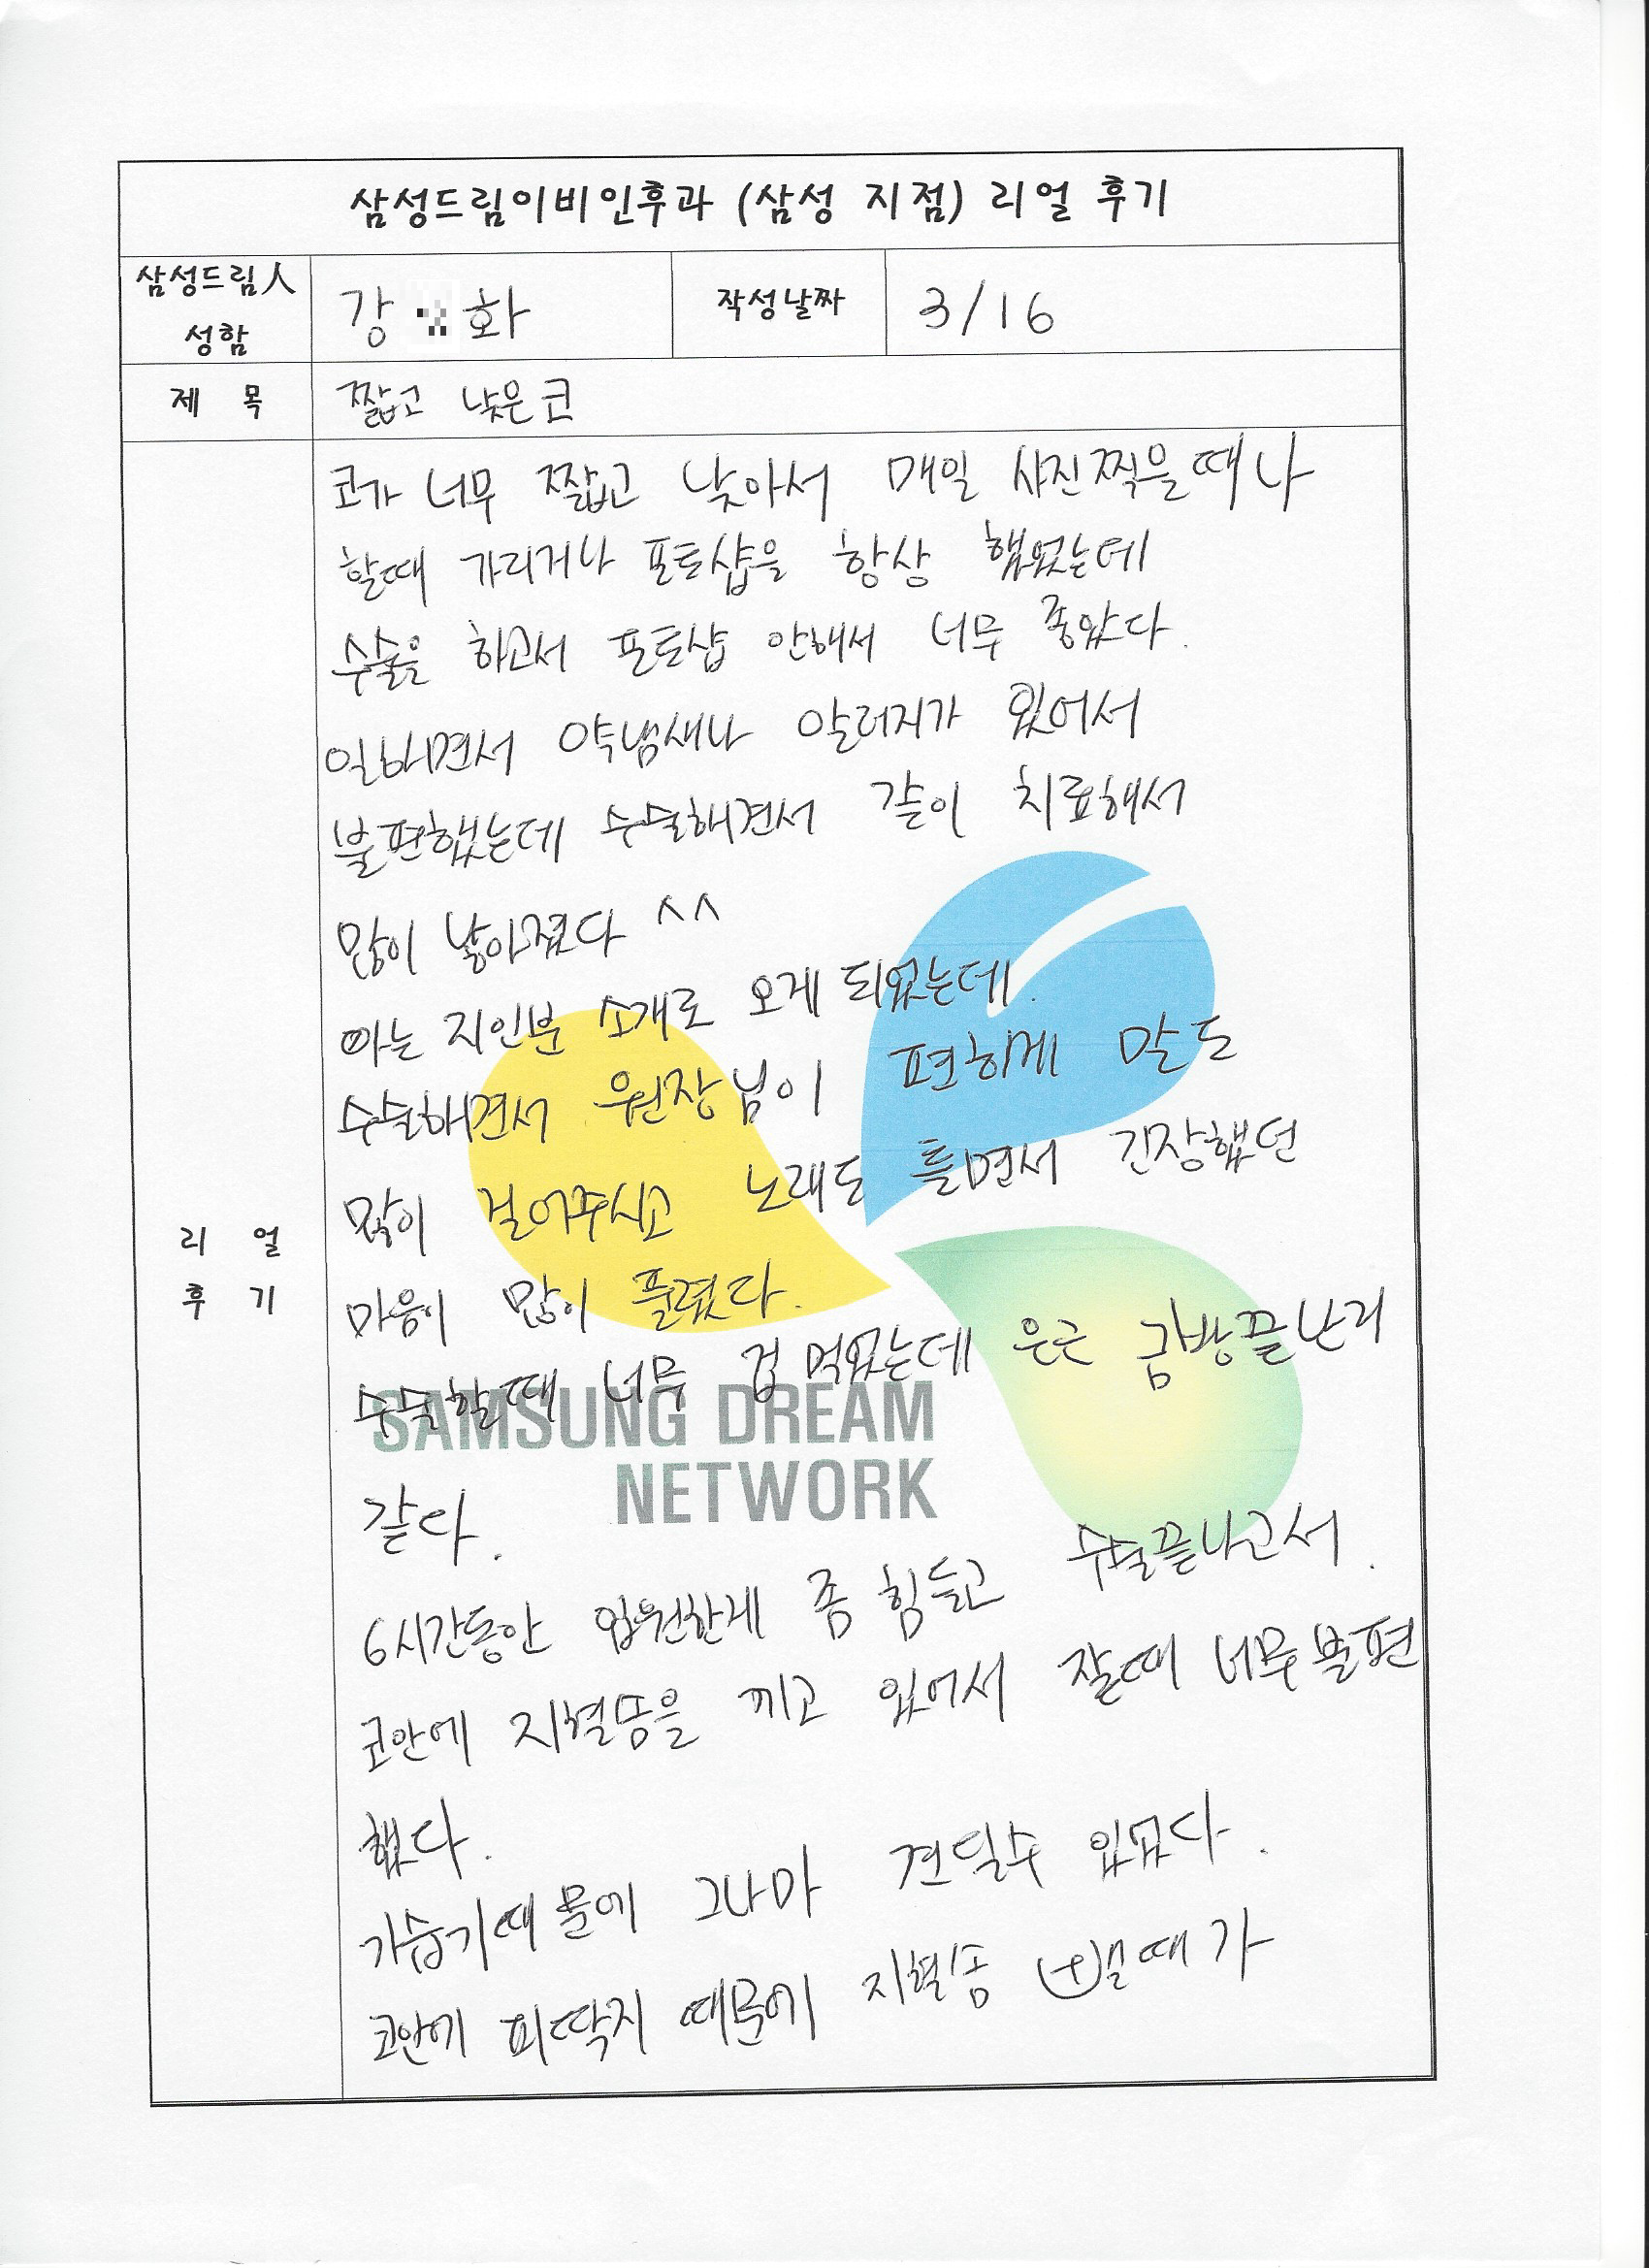 삼성드림이비인후과 (삼성 지점) 리얼 후기
삼성드림人
성함
강 화
작성날짜
3/16
제 목
짧고 낮은코
코가 너무 짧고 낮아서 매일 사진찍을때나
할때 가리거나 포토샵을 항상 했었는데
수술을 하고서 포토샵 안해서 너무 좋았다.
일하면서 약냄새나 알러지가 있어서
불편했는데 수술해면서 같이 치료해서
많이 낳아졌다 ^^
아는 지인분 소개로 오게 되었는데.
수술해면서 원장님이 편하게 말도
많이 걸어주시고 노래도 틀면서 긴장했던
마음이 많이 풀렸다.
수술할때 너무 겁먹었는데 은근 금방끝난거
같다.
6시간동안 입원한게 좀 힘들고 수술끝나고서.
코안에 지혈솜을 끼고 있어서 잘때 너무불편
했다.
가습기때물에 그나마 견딜수 있었다.
코안에 피딱지 때문에 지혈솜 뺄때가
리 얼
후 기
SAMSUNG DREAM
NETWORK